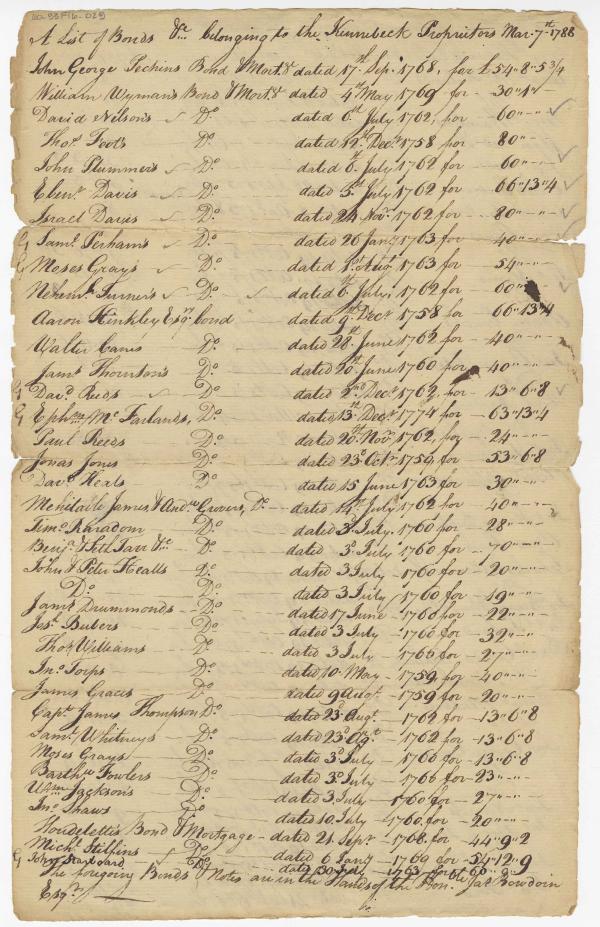 A List of Bonds &c. belonging to the Kennebeck Proprietors Mar. 7th 1788
John George Pechins Bond & Mort.g dated 17th Sep. 1768, for £54"8"5 3/4
William Wyman's Bond & Mort.g dated 4th May 1769 for - 30"1"-
David Nelson's - Do dated 6th July 1762, for 60"-"-
Thos. Foot's Do dated 12th Dec. 1758 for - 80"-
John Plummer's - Do dated 6th July 1762 for - 60"-"-
Eben. Davis - Do dated 5th July 1762 for 66"13"4
Israel Davis - Do dated 24 Nov. 1762 for - 80"-"-
G Saml. Perham's - Do dated 26 Jany. 1763 for - 40"-"-
G Moses Gray's - Do dated 1st Augt 1763 for - 54"-"-
Nehemh. Turner's - Do dated 6th July, 1762 for 60
Aaron Hinkley Esqr. bond dated 9th Decr. 1758 for - 66"13"4
Walter Do dated 28th June 1762 for - 40"-"-
Jams. Thornton's Do dated 20th June 1760 for - 40"-"-
G Davd. Reeds - Do dated 2nd Decr. 1762, for - 13"6"8
G Ephm. Mc Farlands, Do dated 13th Decr. 1774 for - 63"13"4
Paul Reeds Do dated 20th Novr. 1762, for - 24"-"-
Jonas Jones Do dated 23d Octr. 1759, for - 53"6"8
Davd. Heals Do dated 15 June 1763 for - 30"-"-
James, & Andw. Grovers, Do dated 14th July 1762 for - 40"-"-
Timo. Do dated 3d July. 1760 for - 28"-"-
Benj. & Seth Tarr &c Do dated 3d July 1760 for - 70"-"-
John & Peter Healls Do dated 3 July - 1760 for - 20"-"-
Do Do dated 3 July - 1760 for - 19"-"-
Jams. Drummonds - Do dated 17 June - 1760 for - 22"-"-
Jos. Bubers Do dated 3 July - 1760 for - 32"-"-
Thos. Williams Do dated 3 July - 1766 for - 27"-"-
Jno. Torps Do dated 10. May - 1759, for - 40"-"-
James Graces Do dated 9 Augt. - 1759 for - 20"-"-
Capt. James Thompson Do dated 23d Augt. - 1762 for - 13"6"8
Saml. Whitneys Do dated 23d - 1762 for - 13"6"8
Moses Grays Do dated 3d July - 1766 for - 13"6"8
Barthw. Fowlers Do dated 3d July - 1766 for - 23"-"-
Wm. Jackson's Do dated 3 July - 1760 for - 27"-"-
Jno. Shaws Do dated 10. July - 1760, for - 20"-"-
Houdeletts Bond & Mortgage - dated 21 Sept. - 1768, for - 44"9"2
Michl. Stilfins - Do dated 6 Jany. - 1769 for - 54"12"9
G John Do dated 30 1763 for
The foregoing Bonds & Notes are in the Hands of the Hon. Jas. Bowdoin
Esqr.